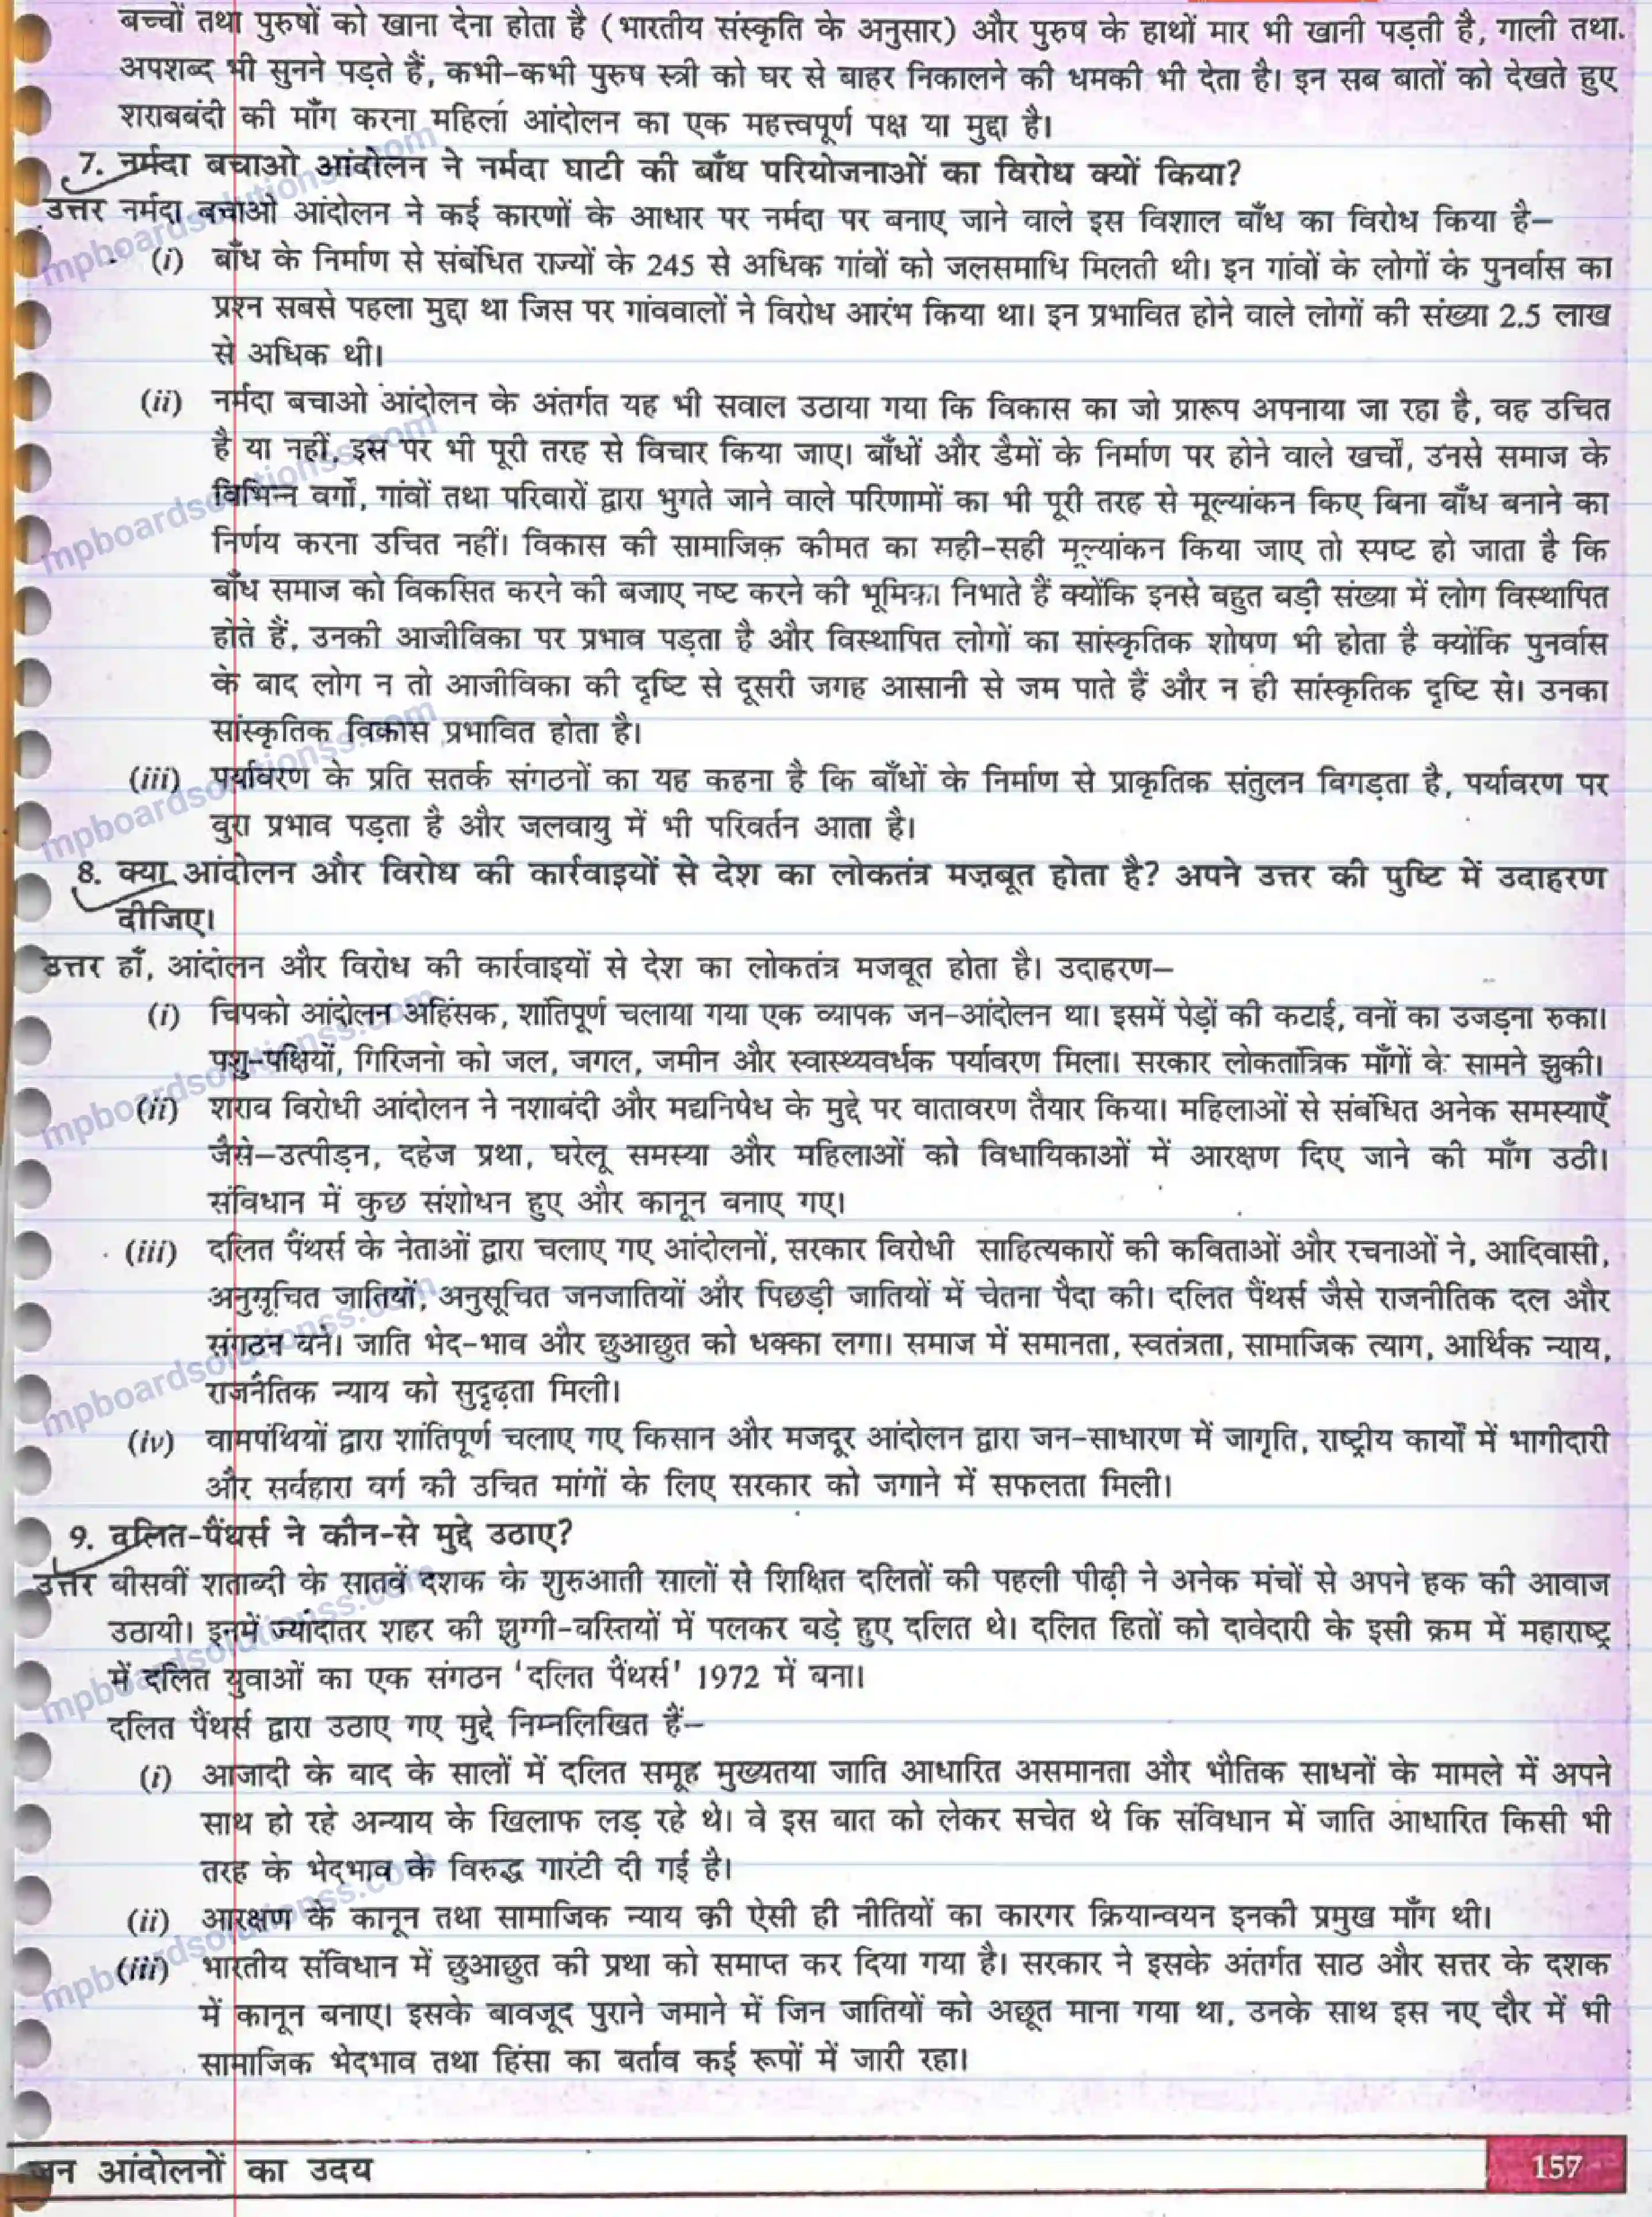 बच्चों तथा पुरुषों को खाना देना होता है (भारतीय संस्कृति के अनुसार) और पुरुष के हाथों मार भी खानी पड़ती है, गाली तथा
अपशब्द भी सुनने पड़ते हैं, कभी-कभी पुरुष स्त्री को घर से बाहर निकालने की धमकी भी देता है। इन सब बातों को देखते हुए
शराबबंदी की माँग करना महिला आंदोलन का एक महत्त्वपूर्ण पक्ष या मुद्दा है।
7. नर्मदा बचाओ आंदोलन ने नर्मदा घाटी की बाँध परियोजनाओं का विरोध क्यों किया?
उत्तर नर्मदा बचाओ आंदोलन ने कई कारणों के आधार पर नर्मदा पर बनाए जाने वाले इस विशाल बाँध का विरोध किया है–
(i) बाँध के निर्माण से संबंधित राज्यों के 245 से अधिक गांवों को जलसमाधि मिलती थी। इन गांवों के लोगों के पुनर्वास का
प्रश्न सबसे पहला मुद्दा था जिस पर गांववालों ने विरोध आरंभ किया था। इन प्रभावित होने वाले लोगों की संख्या 2.5 लाख
से अधिक थी।
(ii) नर्मदा बचाओ आंदोलन के अंतर्गत यह भी सवाल उठाया गया कि विकास का जो प्रारूप अपनाया जा रहा है, वह उचित
है या नहीं, इस पर भी पूरी तरह से विचार किया जाए। बाँधों और डैमों के निर्माण पर होने वाले खर्चों, उनसे समाज के
विभिन्न वर्गों, गांवों तथा परिवारों द्वारा भुगते जाने वाले परिणामों का भी पूरी तरह से मूल्यांकन किए बिना बाँध बनाने का
निर्णय करना उचित नहीं। विकास की सामाजिक कीमत का सही-सही मूल्यांकन किया जाए तो स्पष्ट हो जाता है कि
बाँध समाज को विकसित करने की बजाए नष्ट करने की भूमिका निभाते हैं क्योंकि इनसे बहुत बड़ी संख्या में लोग विस्थापित
होते हैं, उनकी आजीविका पर प्रभाव पड़ता है और विस्थापित लोगों का सांस्कृतिक शोषण भी होता है क्योंकि पुनर्वास
के बाद लोग न तो आजीविका की दृष्टि से दूसरी जगह आसानी से जम पाते हैं और न ही सांस्कृतिक दृष्टि से। उनका
सांस्कृतिक विकास प्रभावित होता है।
(iii) पर्यावरण के प्रति सतर्क संगठनों का यह कहना है कि बाँधों के निर्माण से प्राकृतिक संतुलन बिगड़ता है, पर्यावरण पर
बुरा प्रभाव पड़ता है और जलवायु में भी परिवर्तन आता है।
8. क्या आंदोलन और विरोध की कार्रवाइयों से देश का लोकतंत्र मज़बूत होता है? अपने उत्तर की पुष्टि में उदाहरण
दीजिए।
उत्तर हाँ, आंदोलन और विरोध की कार्रवाइयों से देश का लोकतंत्र मजबूत होता है। उदाहरण–
(i) चिपको आंदोलन अहिंसक, शांतिपूर्ण चलाया गया एक व्यापक जन-आंदोलन था। इसमें पेड़ों की कटाई, वनों का उजड़ना रुका।
पशु-पक्षियों, गिरिजनों को जल, जंगल, जमीन और स्वास्थ्यवर्धक पर्यावरण मिला। सरकार लोकतांत्रिक माँगों के सामने झुकी।
(ii) शराब विरोधी आंदोलन ने नशाबंदी और मद्यनिषेध के मुद्दे पर वातावरण तैयार किया। महिलाओं से संबंधित अनेक समस्याएँ
जैसे–उत्पीड़न, दहेज प्रथा, घरेलू समस्या और महिलाओं को विधायिकाओं में आरक्षण दिए जाने की माँग उठी।
संविधान में कुछ संशोधन हुए और कानून बनाए गए।
(iii) दलित पैंथर्स के नेताओं द्वारा चलाए गए आंदोलनों, सरकार विरोधी साहित्यकारों की कविताओं और रचनाओं ने, आदिवासी,
अनुसूचित जातियों, अनुसूचित जनजातियों और पिछड़ी जातियों में चेतना पैदा की। दलित पैंथर्स जैसे राजनीतिक दल और
संगठन बने। जाति भेद-भाव और छुआछुत को धक्का लगा। समाज में समानता, स्वतंत्रता, सामाजिक त्याग, आर्थिक न्याय,
राजनैतिक न्याय को सुदृढ़ता मिली।
(iv) वामपंथियों द्वारा शांतिपूर्ण चलाए गए किसान और मजदूर आंदोलन द्वारा जन-साधारण में जागृति, राष्ट्रीय कार्यों में भागीदारी
और सर्वहारा वर्ग की उचित मांगों के लिए सरकार को जगाने में सफलता मिली।
9. दलित-पैंथर्स ने कौन-से मुद्दे उठाए?
उत्तर बीसवीं शताब्दी के सातवें दशक के शुरुआती सालों से शिक्षित दलितों की पहली पीढ़ी ने अनेक मंचों से अपने हक की आवाज
उठायी। इनमें ज्यादातर शहर की झुग्गी-बस्तियों में पलकर बड़े हुए दलित थे। दलित हितों को दावेदारी के इसी क्रम में महाराष्ट्र
में दलित युवाओं का एक संगठन 'दलित पैंथर्स' 1972 में बना।
दलित पैंथर्स द्वारा उठाए गए मुद्दे निम्नलिखित हैं–
(i) आजादी के बाद के सालों में दलित समूह मुख्यतया जाति आधारित असमानता और भौतिक साधनों के मामले में अपने
साथ हो रहे अन्याय के खिलाफ लड़ रहे थे। वे इस बात को लेकर सचेत थे कि संविधान में जाति आधारित किसी भी
तरह के भेदभाव के विरुद्ध गारंटी दी गई है।
(ii) आरक्षण के कानून तथा सामाजिक न्याय की ऐसी ही नीतियों का कारगर क्रियान्वयन इनकी प्रमुख माँग थी।
(iii) भारतीय संविधान में छुआछुत की प्रथा को समाप्त कर दिया गया है। सरकार ने इसके अंतर्गत साठ और सत्तर के दशक
में कानून बनाए। इसके बावजूद पुराने जमाने में जिन जातियों को अछूत माना गया था, उनके साथ इस नए दौर में भी
सामाजिक भेदभाव तथा हिंसा का बर्ताव कई रूपों में जारी रहा।
जन आंदोलनों का उदय
157
mpboardsolutionss.com
mpboardsolutionss.com
mpboardsolutionss.com
mpboardsolutionss.com
mpboardsolutionss.com
mpboardsolutionss.com
mpboardsolutionss.com